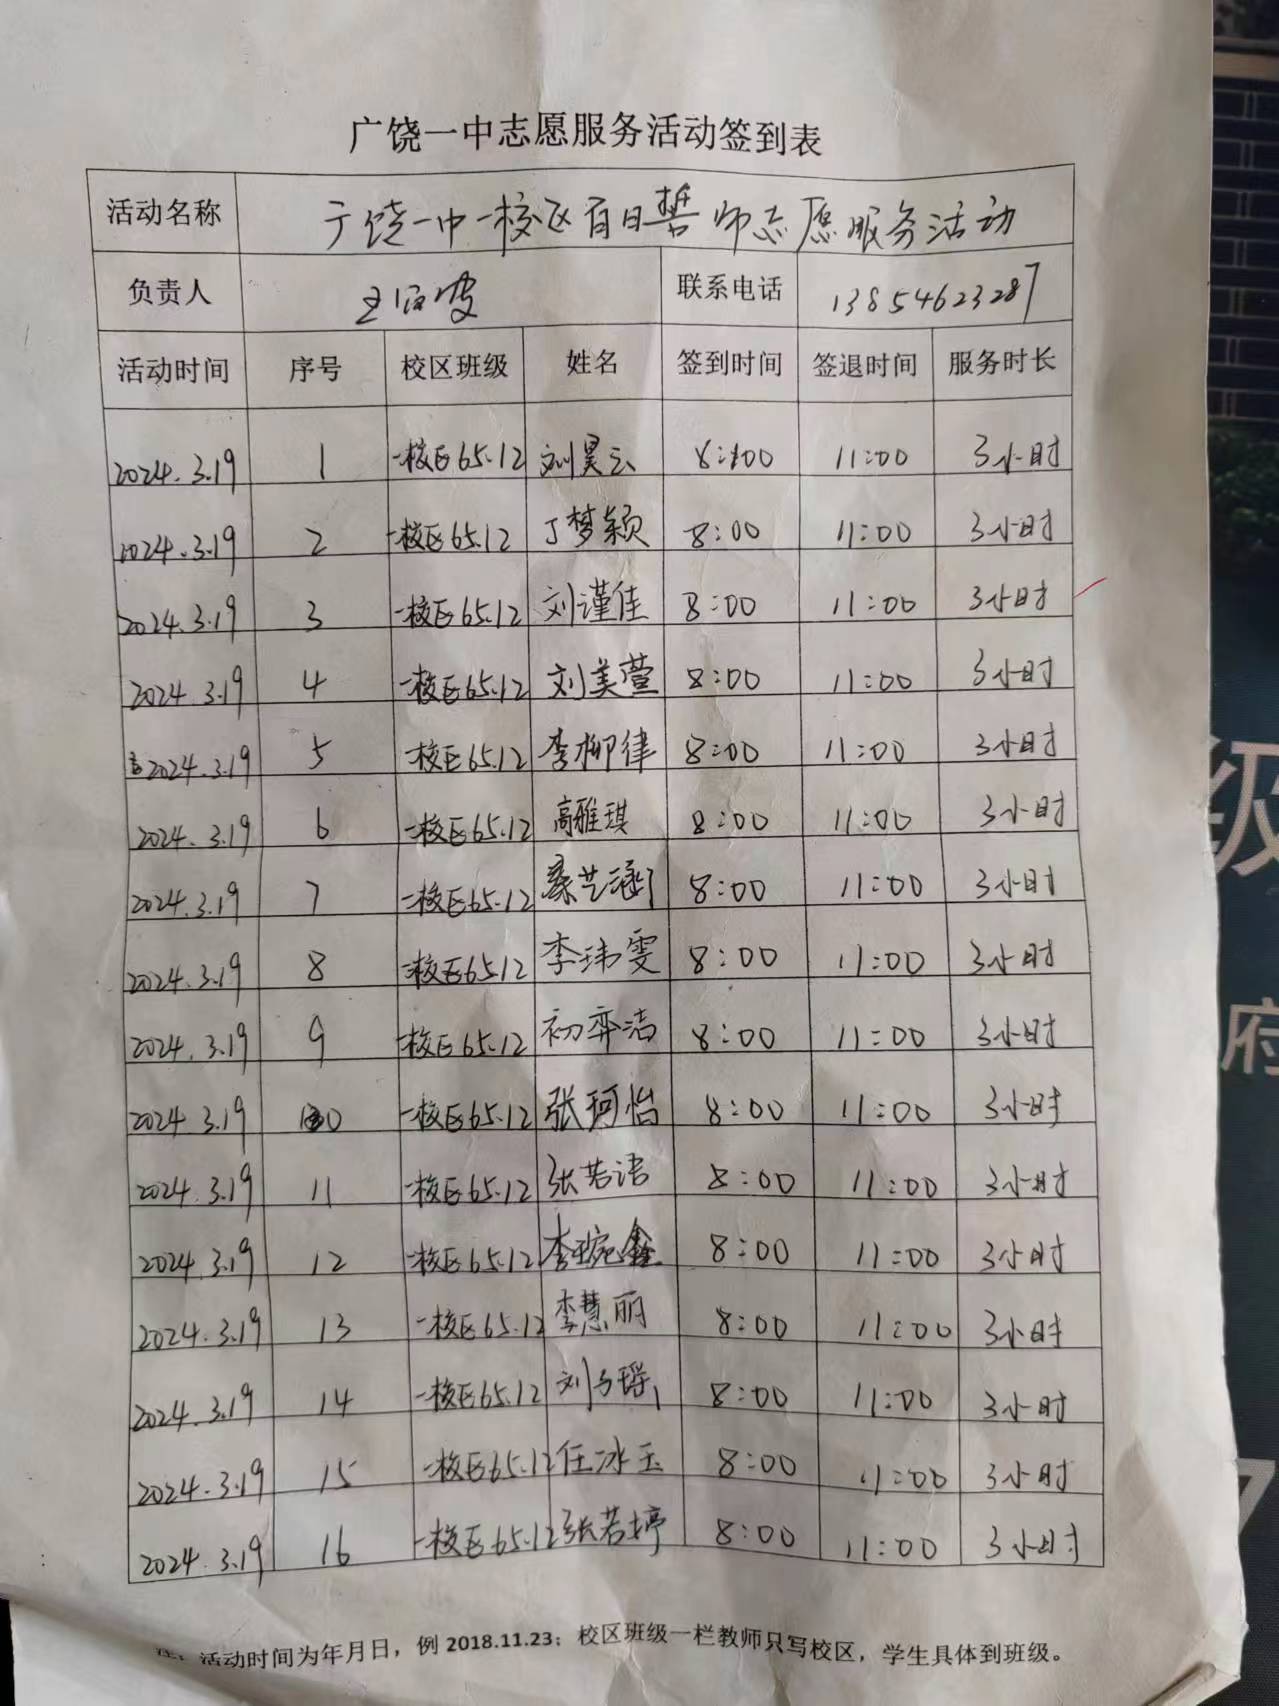 广饶一中志愿服务活动签到表
活动名称 广饶一中一校区百日誓师志愿服务活动
负责人 联系电话 13854623287
活动时间 序号 校区班级 姓名 签到时间 签退时间 服务时长
2024.3.19 1 一校区65.12 刘昊云 8:00 11:00 3小时
2024.3.19 2 一校区65.12 丁梦颖 8:00 11:00 3小时
2024.3.19 3 一校区65.12 刘谨佳 8:00 11:00 3小时
2024.3.19 4 一校区65.12 刘美萱 8:00 11:00 3小时
2024.3.19 5 一校区65.12 李柳律 8:00 11:00 3小时
2024.3.19 6 一校区65.12 高雅琪 8:00 11:00 3小时
2024.3.19 7 一校区65.12 桑艺涵 8:00 11:00 3小时
2024.3.19 8 一校区65.12 李玮雯 8:00 11:00 3小时
2024.3.19 9 一校区65.12 初弈洁 8:00 11:00 3小时
2024.3.19 10 一校区65.12 张珂怡 8:00 11:00 3小时
2024.3.19 11 一校区65.12 张若语 8:00 11:00 3小时
2024.3.19 12 一校区65.12 李琬鑫 8:00 11:00 3小时
2024.3.19 13 一校区65.12 李慧丽 8:00 11:00 3小时
2024.3.19 14 一校区65.12 8:00 11:00 3小时
2024.3.19 15 一校区65.12 任冰玉 8:00 11:00 3小时
2024.3.19 16 一校区65.12 张若婷 8:00 11:00 3小时
注：活动时间为年月日，例2018.11.23；校区班级一栏教师只写校区，学生具体到班级。
级
府
7